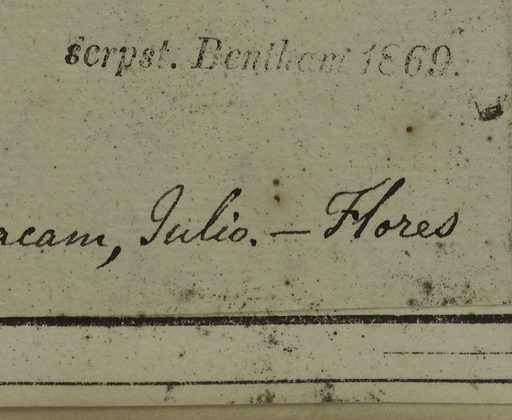 scrpst. Bentham 1869.
acam, Julio. — Flores